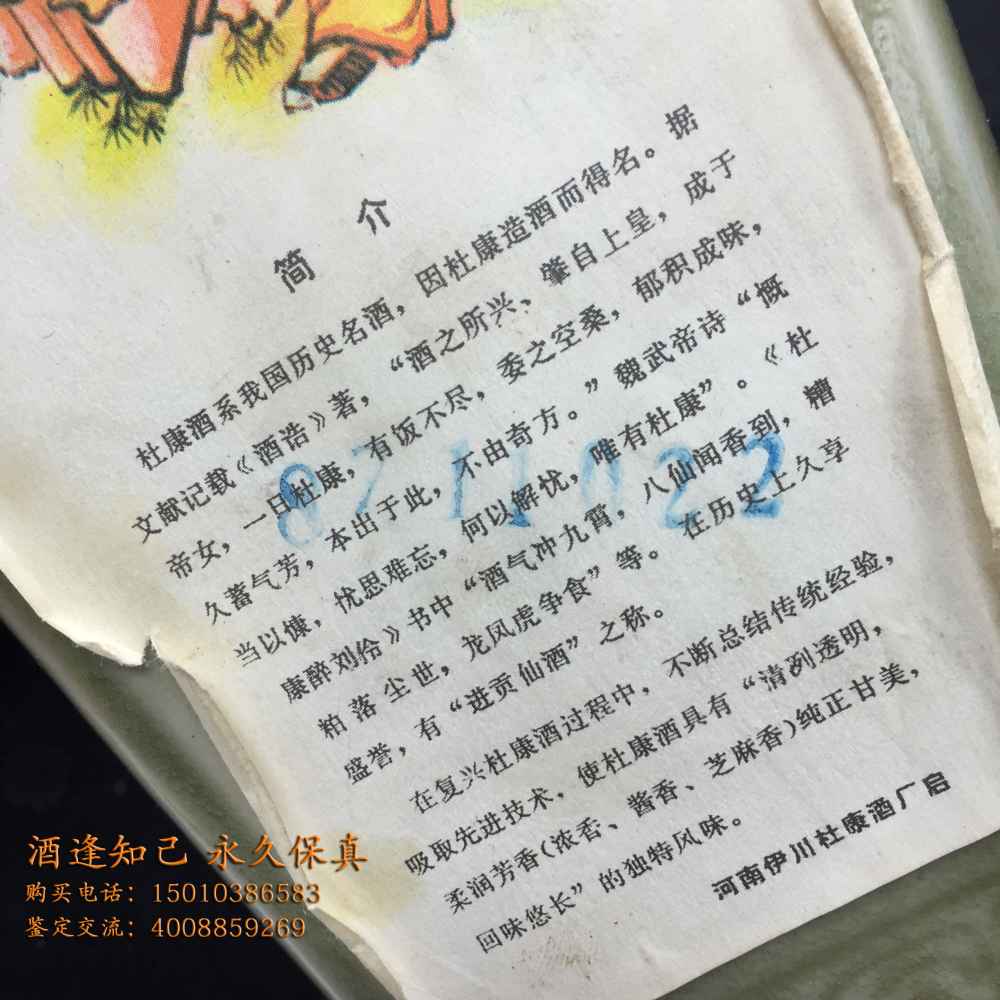 简 介
杜康酒系我国历史名酒，因杜康造酒而得名。据
文献记载《酒浩》著，“酒之所兴、肇自上皇，成于
帝女，一日杜康，有饭不尽，委之空桑，郁积成味，
久蓄气芳，本出于此，不由奇方。”魏武帝诗“慨
当以慷，忧思难忘，何以解忧，唯有杜康”。《杜
康醉刘伶》书中“酒气冲九霄，八仙闻香到，糟
粕落尘世，龙凤虎争食”等。在历史上久享
盛誉，有“进贡仙酒”之称。
在复兴杜康酒过程中，不断总结传统经验，
吸取先进技术，使杜康酒具有“清冽透明，
柔润芳香(浓香、酱香、芝麻香)纯正甘美，
回味悠长”的独特风味。
河南伊川杜康酒厂启
871022
酒逢知己 永久保真
购买电话：15010386583
鉴定交流：4008859269